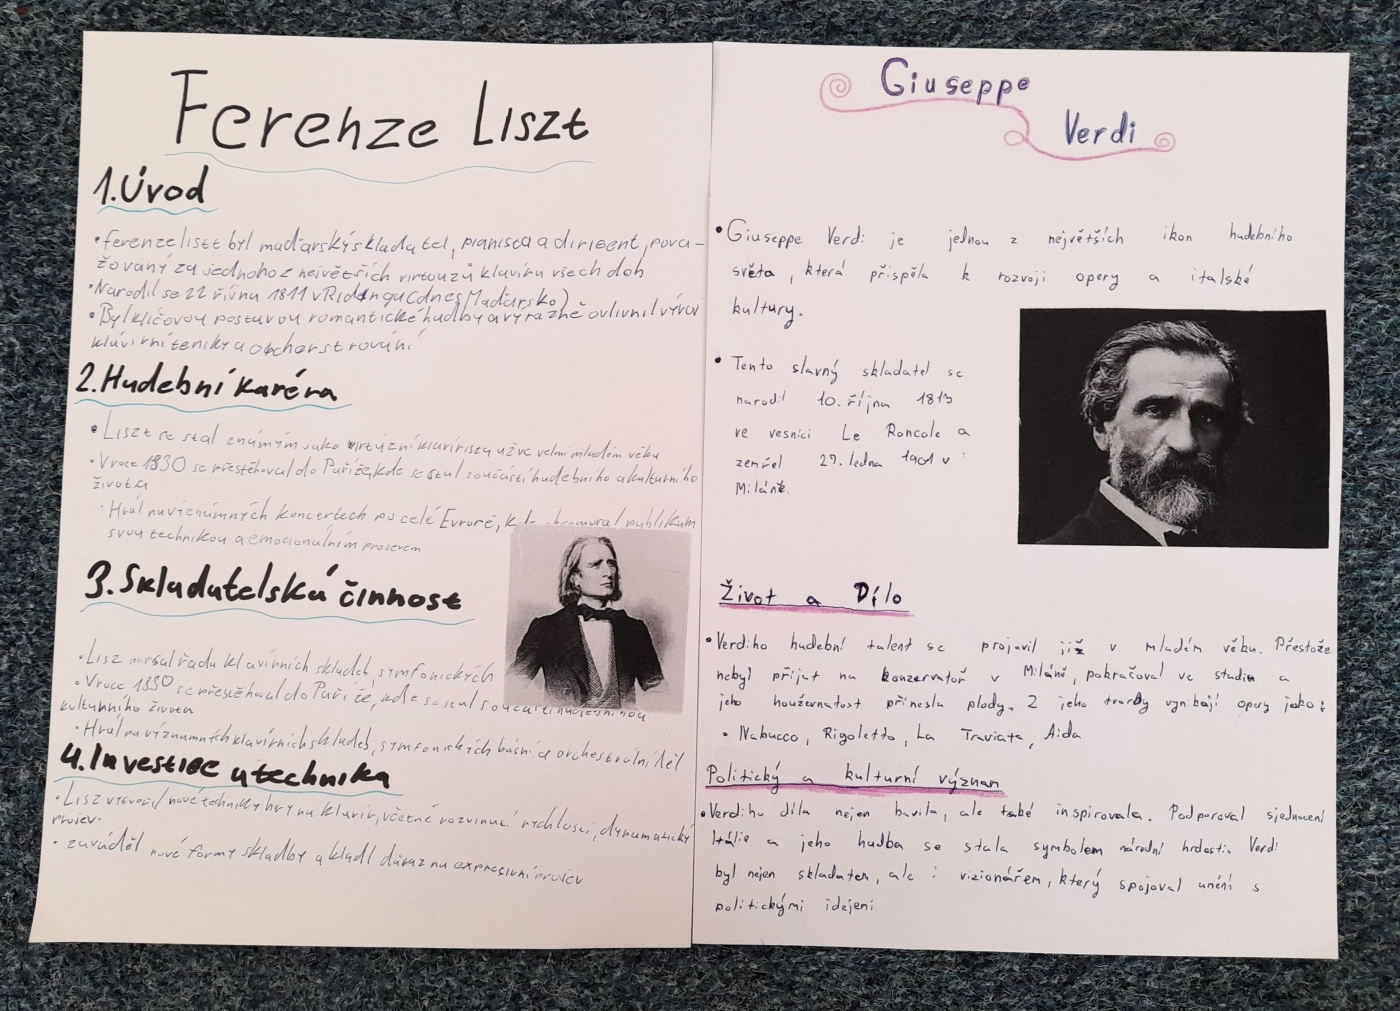 Ferenze Liszt
1. Úvod
• ferenze liszt byl maďarský skladatel, pianista a dirigent, pova-
žovaný za jednoho z největších virtuozů klavíru všech dob
• Narodil se 22 října 1811 v (dnes Maďarsko)
• Byl klíčovou postavou romantické hudby a výrazně ovlivnil vývoj
klavírní teniky a
2. Hudební kariéra
• Liszt se stal známým jako už ve velmi mladém věku
• V roce 1830 se přestěhoval do Paříže, kde se stal součástí hudebního a kulturního
života
• Hrál na významných koncertech po celé Evropě, publikum
svou technikou a emocionálním projevem
3. Skladatelská činnost
• Lisz napsal řadu klavírních skladeb, symfonických
• V roce 1830 se přestěhoval do Paříže, kde se stal součástí
kulturního života
• Hrál na významných klavírních skladeb, symfonických básní a orchestrální děl
4. a technika
• Lisz vytvořil nové techniky hry na klavír, včetně rozvinutí rychlosti, dynamatický
projev.
• zaváděl nové formy skladby a kladl důraz na expresivní projev
Giuseppe
Verdi
• Giuseppe Verdi je jednou z největších ikon hudebního
světa, která přispěla k rozvoji opery a italské
kultury.
• Tento slavný skladatel se
narodil 10. října 1813
ve vesnici Le Roncole a
zemřel 27. ledna 1901 v
Miláně.
Život a Dílo
• Verdiho hudební talent se projevil již v mladém věku. Přestože
nebyl přijat na konzervatoř v Miláně, pokračoval ve studiu a
jeho houževnatost přinesla plody. Z jeho tvorby vynikají opery jako:
• Nabucco, Rigoletto, La Traviata, Aida
Politický a kulturní význam
• Verdiho díla nejen bavila, ale také inspirovala. Podporoval sjednocení
Itálie a jeho hudba se stala symbolem národní hrdosti. Verdi
byl nejen skladatem, ale i vizionářem, který spojoval umění s
politickými idejení